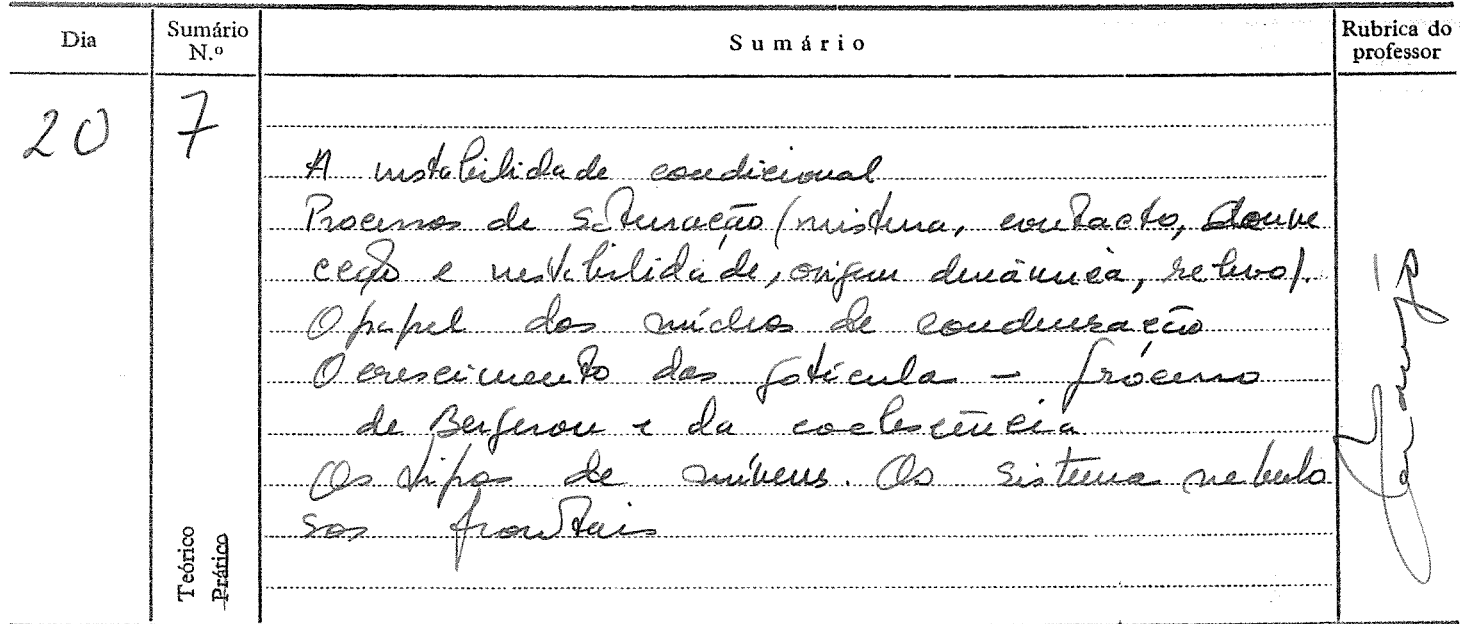 Dia
Sumário N.º
Sumário
Rubrica do professor
20
7
A instabilidade condicional
Processos de saturação (mistura, contacto, convec
ceção e instabilidade, origem dinâmica, relevo).
O papel dos núcleos de condensação
O crescimento das gotícula – processo
de Bergeron e da coalescência
Os tipos de núvens. Os sistema nebulo
sos frontais
Teórico
Prático